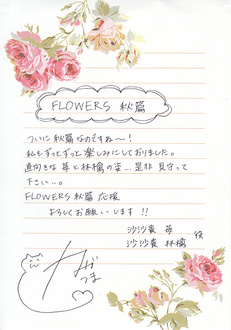 FLOWERS 秋篇
ついに秋篇なのですね〜!
私もずっとずっと楽しみにしておりました。
直向きな苺と林檎の姿…是非見守って
下さい…。
FLOWERS 秋篇 応援
よろしくお願いします!!
沙沙貴 苺
沙沙貴 林檎 役